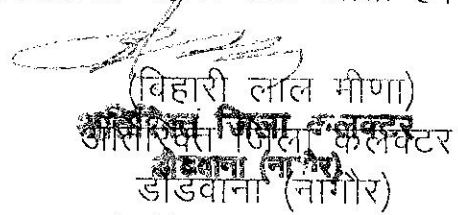 (विहारी लाल मीणा)
अतिरिक्त जिला कलक्टर
डीडवाना (नागौर)